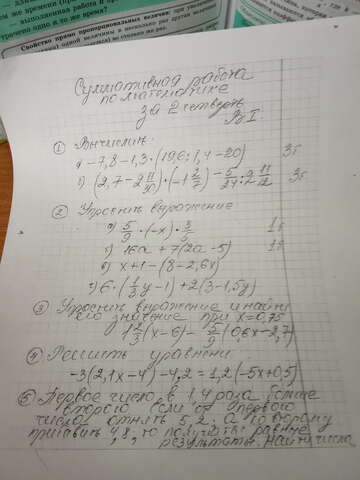 тем же времени
— выполненная работа и
трачено одно и то же время?
Свойство прямо пропорциональных величин: при увеличении
одной величины в несколько раз другая величина
во столько же раз.
Суммативная работа
по математике
за 2 четверть
В I.
① Вычислить:
а) -7,8-1,3·(19,6:1,4-20) 3б
б) (2,7-2 11/30)·(-1 2/7)-5/24:2 11/12 3б
② Упростить выражение
а) 5/9·(-x)·3/5 1б
б) 16a+7(2a-5) 1б
в) x+1-(8-2,6x)
г) 6·(1/3y-1)+2(3-1,5y)
③ Упростить выражение и найти
его значение при x=0,75
1 2/3(x-6)-5/9(0,6x-2,7)
④ Решить уравнени
-3(2,1x-4)-4,2=1,2(-5x+0,5)
⑤ Первое число в 1,4 раза больше
второго. если от первого
числа отнять 5,2, а ко второму
прибавить 4,8, то получатся равные
результаты. Найти числа